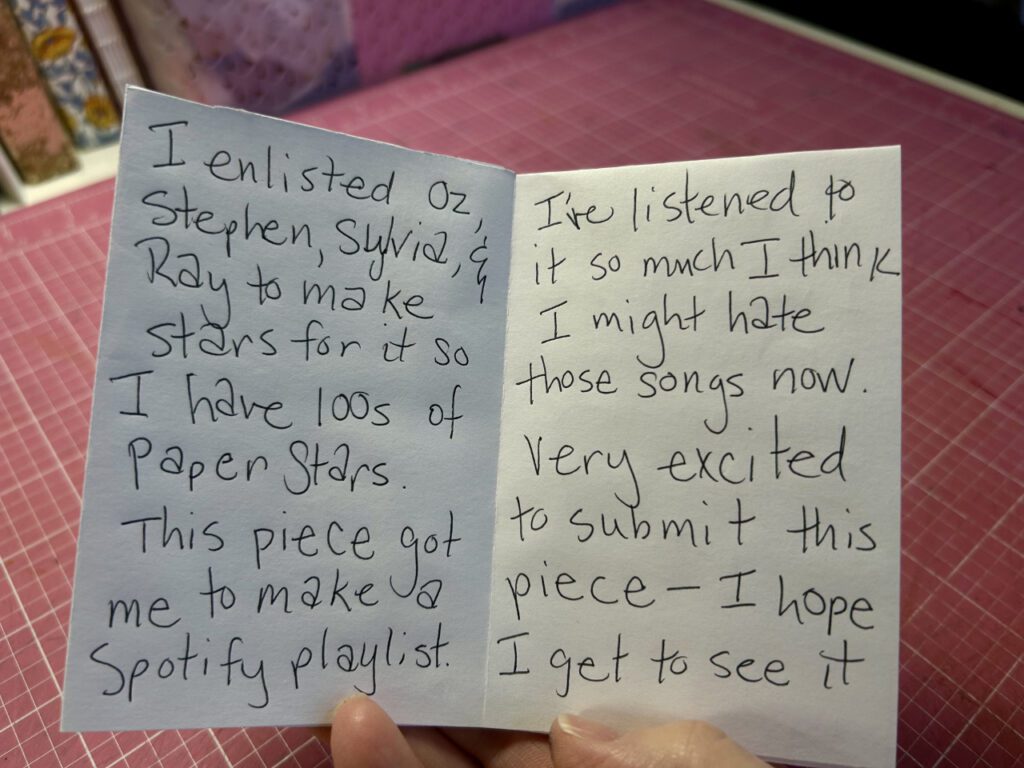 I enlisted Oz,
Stephen, Sylvia, &
Ray to make
stars for it so
I have 100s of
Paper Stars.
This piece got
me to make a
Spotify playlist.
I've listened to
it so much I think
I might hate
those songs now.
Very excited
to submit this
piece – I hope
I get to see it